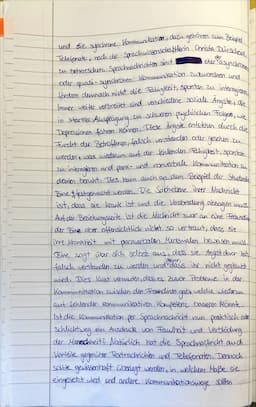 und die synchrone Kommunikation, dazu gehören zum Beispiel
Telefonate, nach der Sprachwissenschaftlerin Christa Dürscheid
zu beherrschen. Sprachnachrichten sind eher der asynchronen
oder quasi-synchronen Kommunikation zuzuordnen und
fördern demnach nicht die Fähigkeit, spontan zu interagieren.
Immer weiter verbreitet sind verschiedene soziale Ängste, die
in starker Ausprägung zu schweren psychischen Folgen, wie
Depressionen führen können. Diese Ängste entstehen durch die
Furcht der Betroffenen, falsch verstanden oder gesehen zu
werden, was wiederum auf der fehlenden Fähigkeit, spontan
zu interagieren und para- und nonverbale Kommunikation zu
deuten beruht. Dies kann auch an dem Beispiel der Studentin
Eine festgemacht werden. Die Sachebene ihrer Nachricht
ist, dass sie krank ist und die Verabredung absagen muss.
Auf der Beziehungsseite ist die Nachricht zwar an eine Freundin,
der Eine aber offensichtlich nicht so vertraut, dass sie
ihre Krankheit mit paraverbalen Merkmalen beweisen muss.
Eine sagt über sich selbst aus, dass sie Angst davor hat,
falsch verstanden zu werden und dass ihr nicht geglaubt
wird. Dies lässt vermuten, dass es zuvor Probleme in der
Kommunikation zwischen den Freunden gab, welche wiederum
auf fehlender kommunikativer Kompetenz basieren könnte.
Ist die Kommunikation per Sprachnachricht nun praktisch oder
schlichtweg ein Ausdruck von Faulheit und Verblödung
der Menschheit? Natürlich hat die Sprachnachricht auch
Vorteile gegenüber Textnachrichten und Telefonaten. Dennoch
sollte gewissenhaft überlegt werden, in welchem Maße sie
eingesetzt wird und andere Kommunikationswege sollten